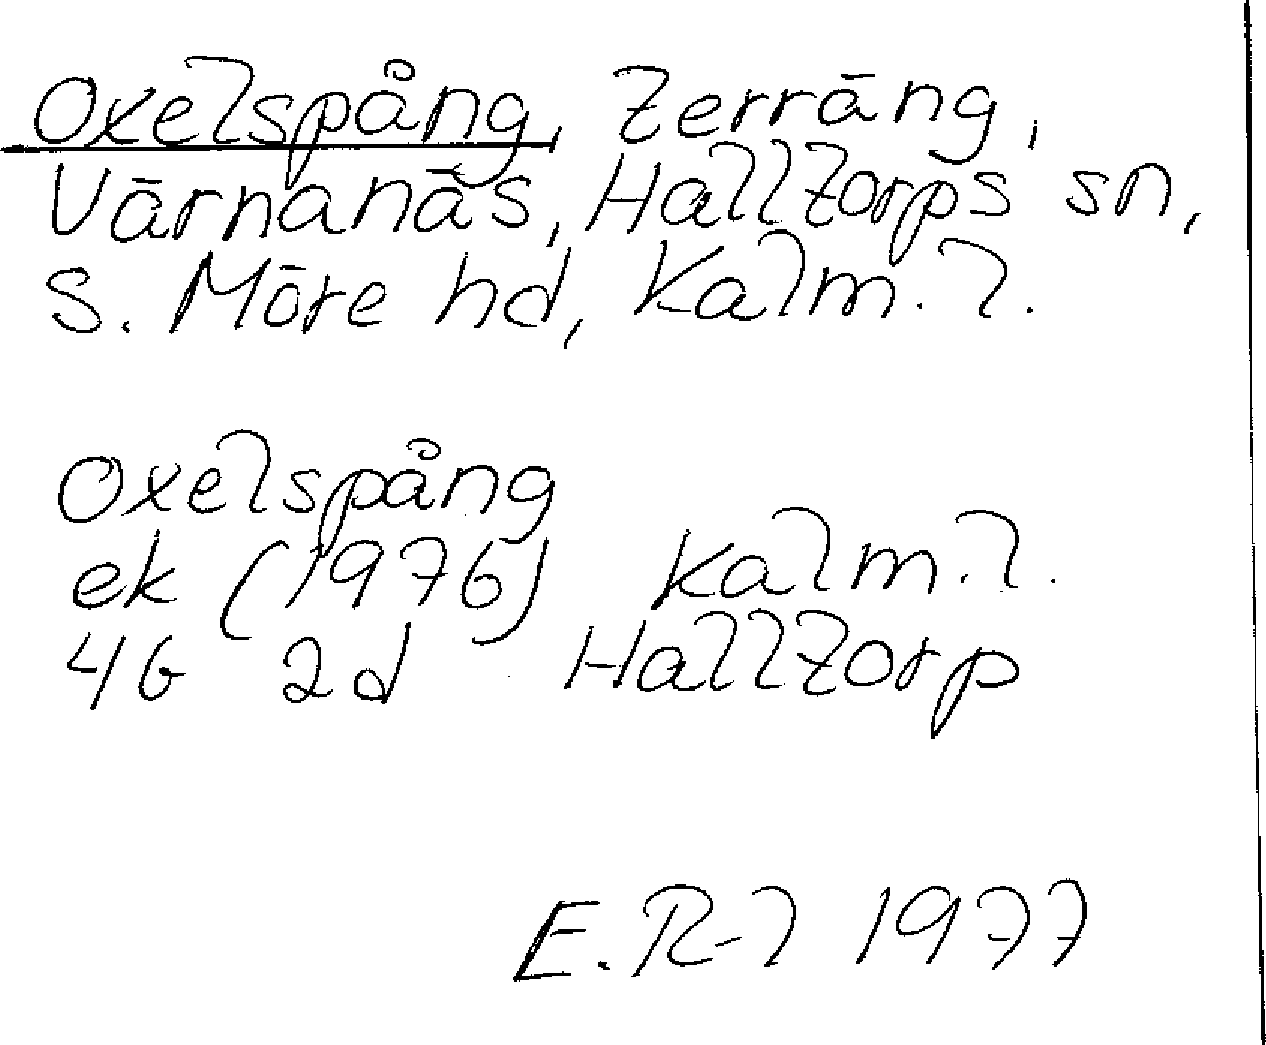 Oxelspång, terräng,
Värnanäs, Halltorps sn,
S. Möre hd, Kalm. l.
Oxelspång
ek (1976) Kalm. l.
4G 2d Halltorp
E. R-l 1977